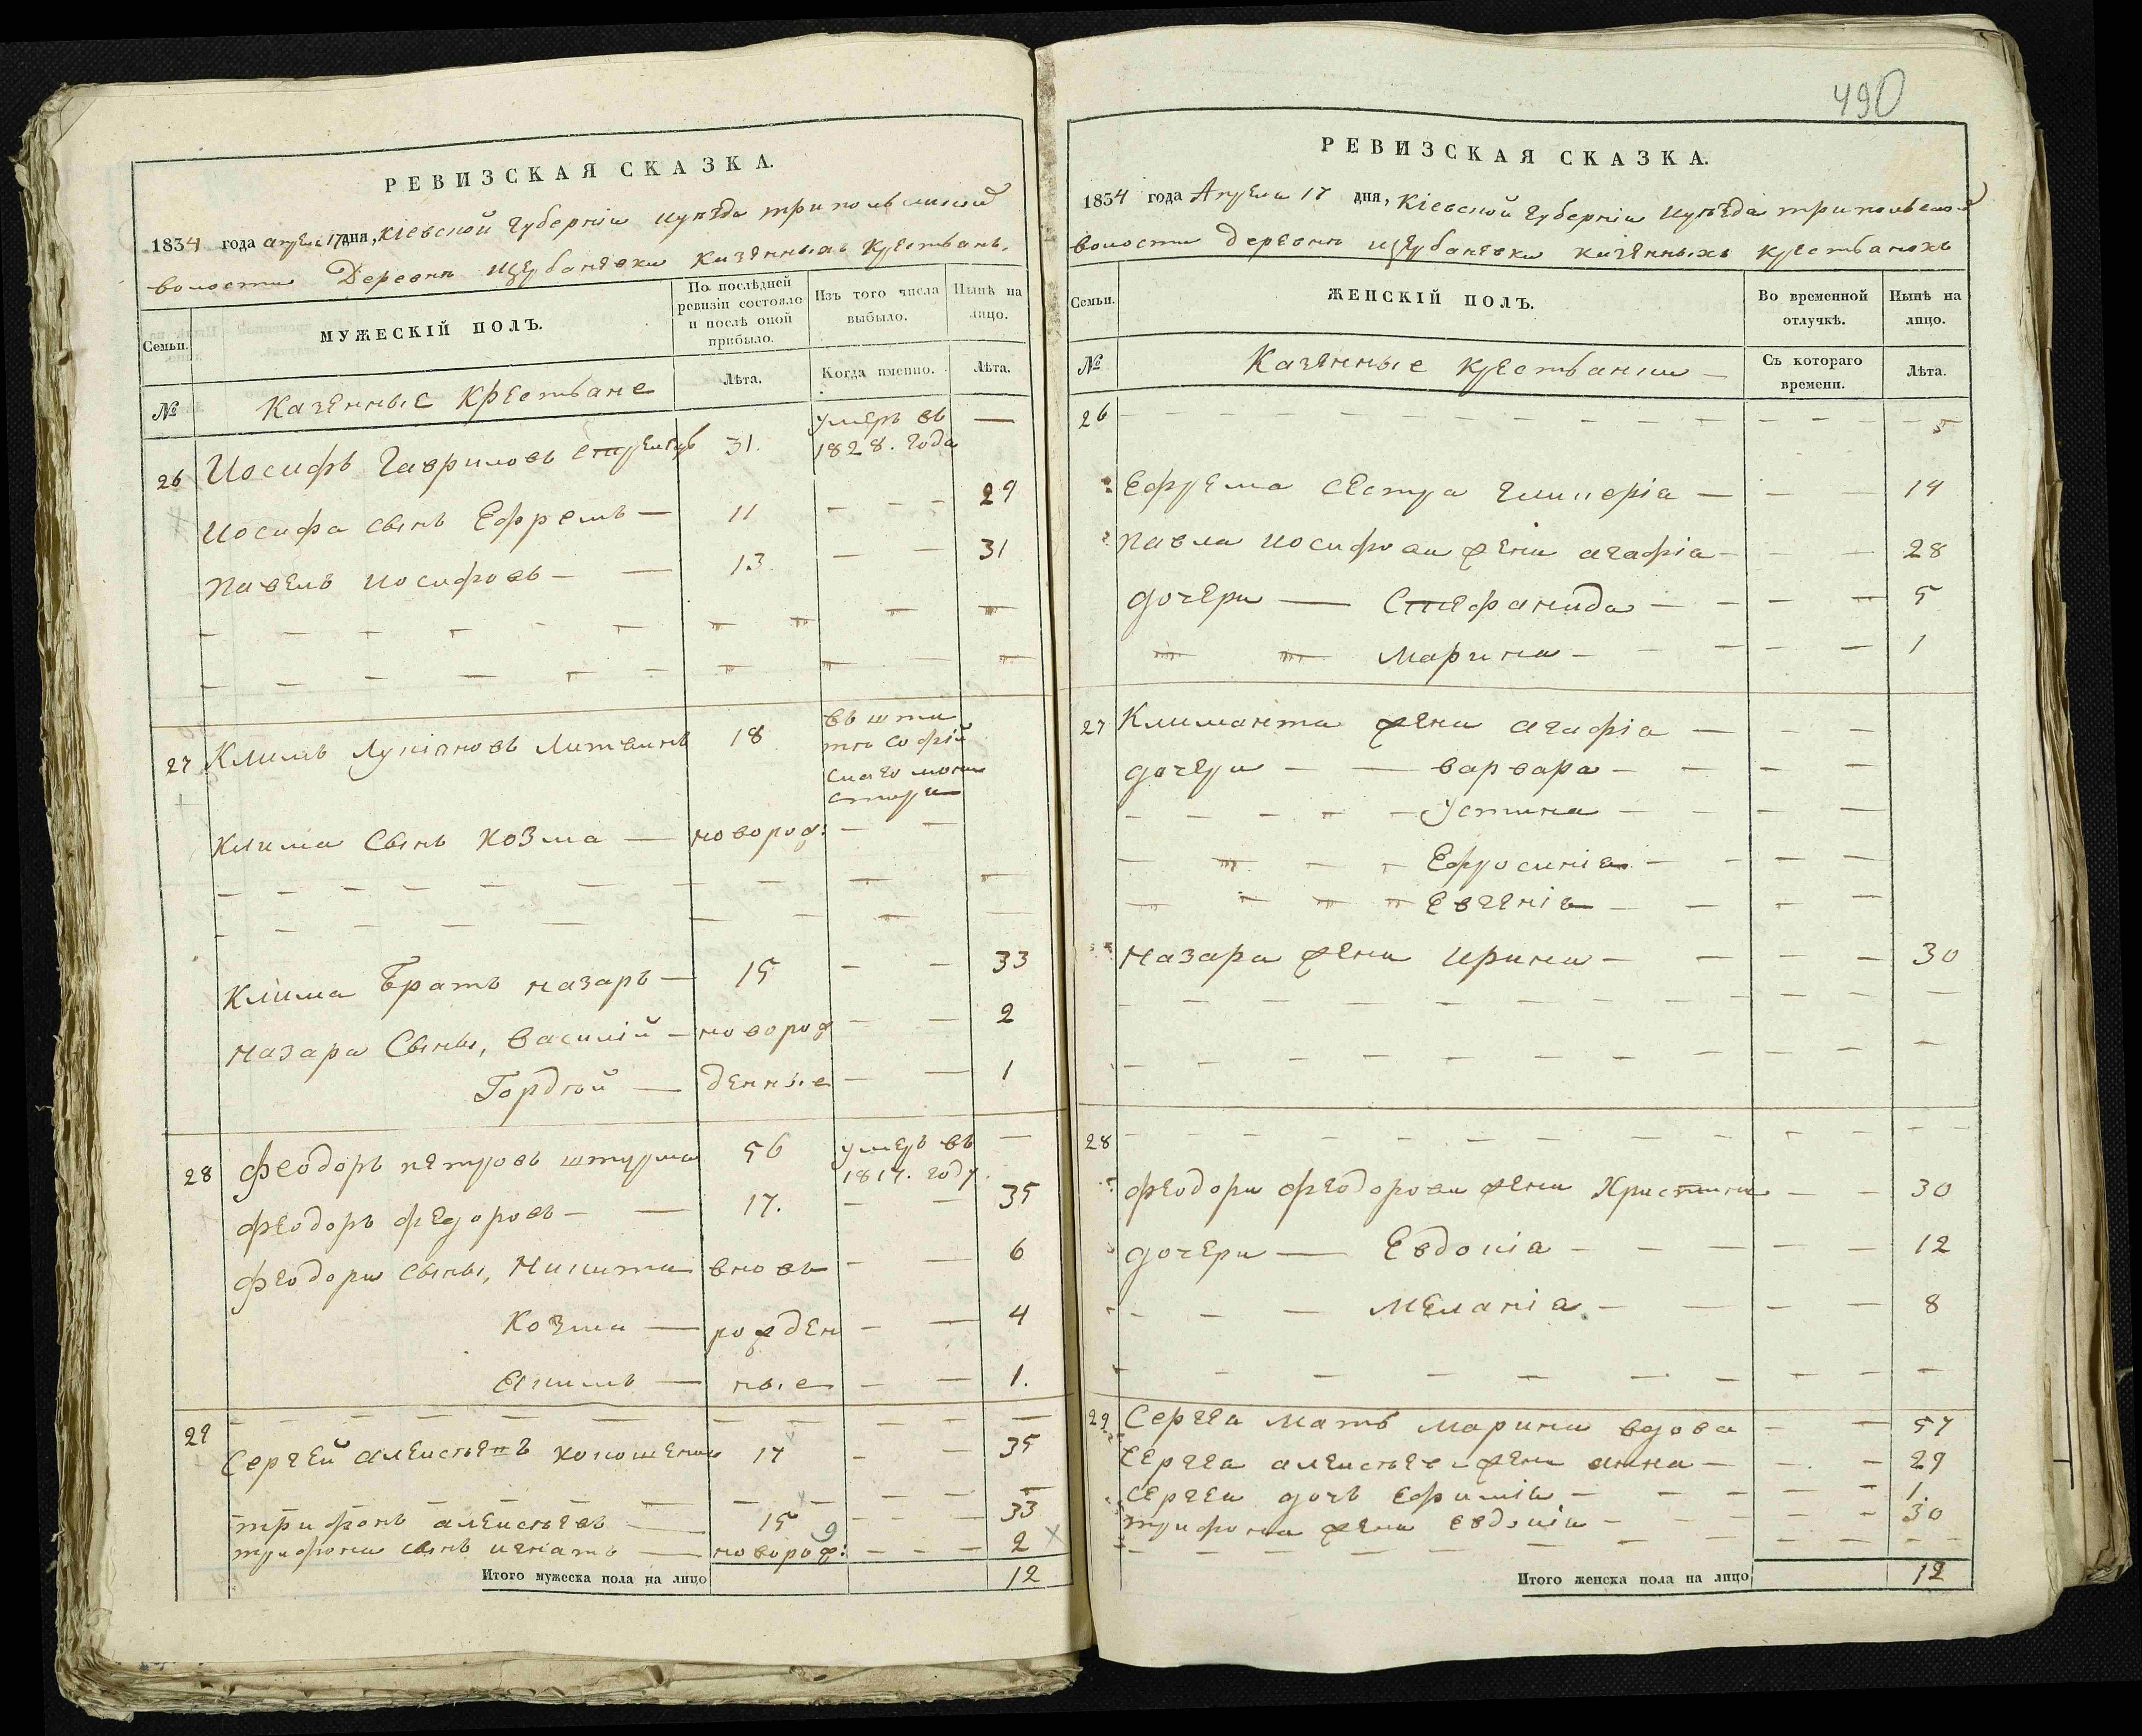 490
РЕВИЗСКАЯ СКАЗКА.
1834 года апреля 17 дня, Кіевской губерніи уѣзда трипольской
волости Деревни Щербанѣвки казенныхъ крестьянъ.
Семьи. МУЖЕСКІЙ ПОЛЪ. По послѣдней ревизіи состояло и послѣ оной прибыло. Изъ того числа выбыло. Нынѣ на лицо.
№ Казенные Крестьяне Лѣта. Когда именно. Лѣта.
26 Иосифъ Гавриловъ 31. умеръ въ 1828. года —
Иосифа сынъ Ефремъ — 11 — — — 29
Павелъ Иосифовъ — — 13 — — 31
27 Климъ Лукіяновъ Литвинъ 18 въ шта
тъ софій
скаго мона
стыря
Клима Сынъ Козма — новорож: — —
Клима Братъ Назаръ — 15 — — 33
Назара Сыны, Василій — новорож — — 2
Гордѣй — денные — — 1
28 Феодоръ петровъ штурма 56 умеръ въ 1817. году —
Феодоръ федоровъ — — 17. — 35
Феодора сыны, Никита вновь — — 6
Козма — рожден — — 4
Акимъ — ные — — 1.
29 Сергей алексѣевъ 17 — — 35
трифонъ алексѣевъ — 15 — — — 33
трифона сынъ игнатъ — новорож: — — — 2
Итого мужеска пола на лицо 12
РЕВИЗСКАЯ СКАЗКА.
1834 года Апреля 17 дня, Кіевской губерніи уѣзда трипольской
волости деревни Щербанѣвки казенныхъ крестьянохъ
Семьи. ЖЕНСКІЙ ПОЛЪ. Во временной отлучкѣ. Нынѣ на лицо.
№ Казенные крестьянки — Съ котораго времени. Лѣта.
26
Ефрема сестра гликеріа — — — 14
Павла Иосифова жена агафіа — — — 28
дочери — Стефанида — — — — 5
Марина — — — — — 1
27 Климанта жена агафіа — — —
дочери — — варвара — — — —
Устина — — — —
Ефросиніа — — — —
Евгеніа — — — —
Назара жена Ирина — — — — 30
28
Феодора Феодорова жена Христина — — 30
дочери — Евдокіа — — — — — 12
Меланіа — — — — 8
29 Сергея мать Марина вдова — — 57
Сергея алексѣева жена анна — — — 29
Сергея дочь Ефиміа — — — — — 1.
трифона жена Евдокіа — — — — — 30
Итого женска пола на лицо 12